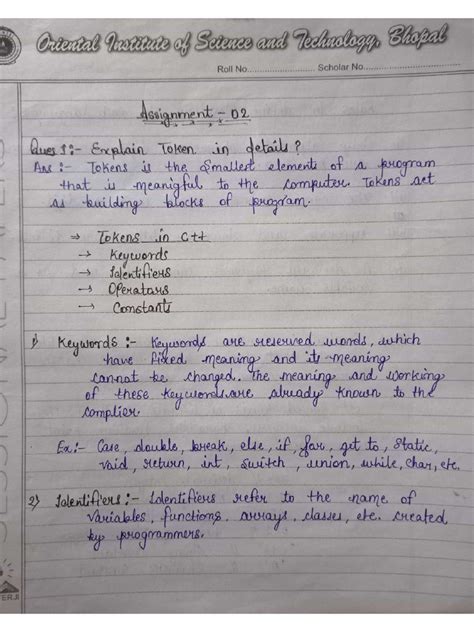 Oriental Institute of Science and Technology, Bhopal
Roll No.................... Scholar No....................
Assignment - 02
Ques 1:- Explain Token in details?
Ans :- Tokens is the smallest element of a program
that is meanigful to the computer. Tokens act
as building blocks of program.
→ Tokens in C++
→ Keywords
→ Identifiers
→ Operators
→ Constants
1) Keywords :- Keywords are reserved words, which
have fixed meaning and its meaning
cannot be changed. The meaning and working
of these keywords are already known to the
complier.
Ex:- Case, double, break, else, if, for, get to, static,
void, return, int, switch, union, while, char, etc.
2) Identifiers :- Identifiers refer to the name of
variables, functions, arrays, classes, etc. created
by programmers.